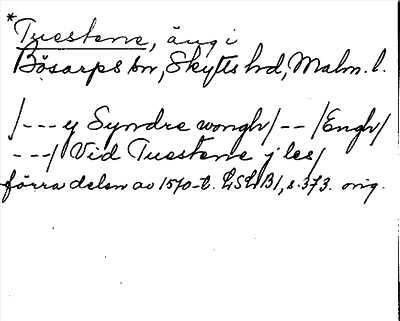 *Tuestene, äng i
Bösarps sn, Skytts hd, Malm. l.
/--- y Syndre wongh/ -- /Engh/
---/ Vid Tuestene j les/
förra delen av 1570-t. LSLB1, s. 373. orig.